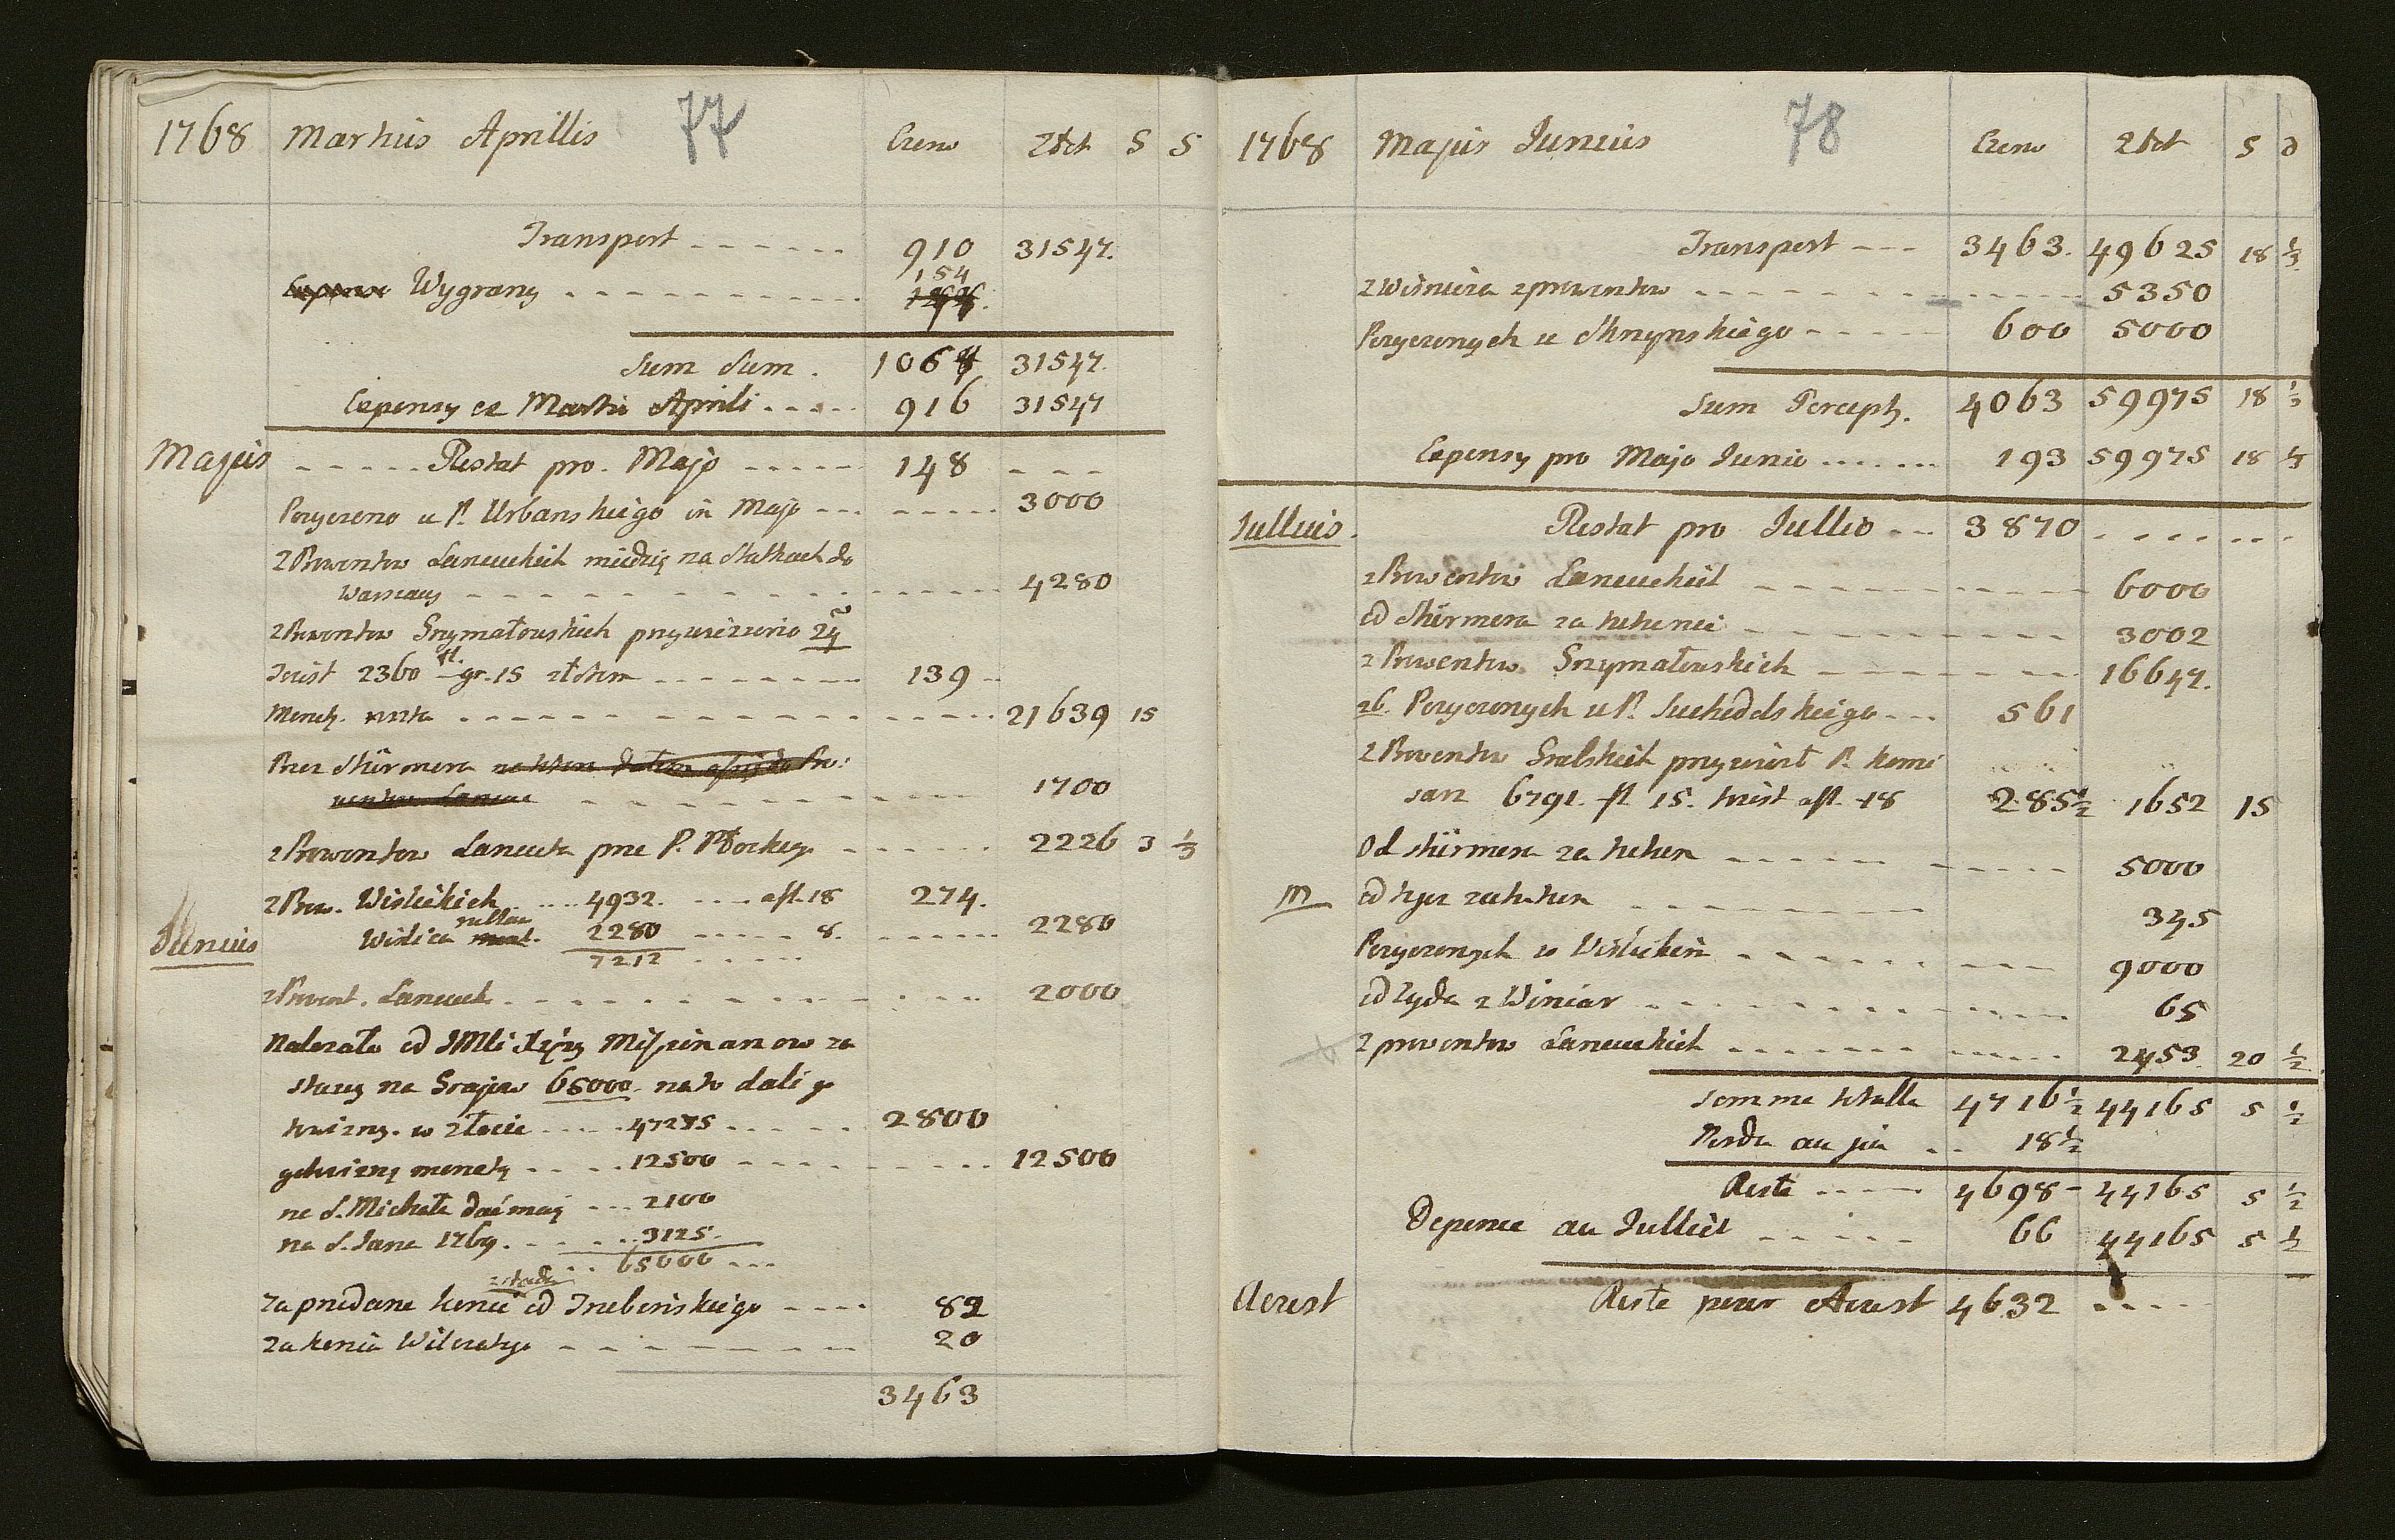 1768 Martius Aprillis 77 Czerw Złot S S
Transport - - - - - - 910 31547.
Expense Wygrany - - - - - - - - - - - 154
Sum Sum . 1064 31547.
Expensy ex Martio Aprili - - - - - 916 31547
Majus - - - - - Restat pro. Majo - - - - - 148 - - -
Pozyczono u P. Urbanskiego in Majo - - - - - - - - 3000
z Prowentow Lancuckich miedzią na Statkach do
Warszawy - - - - - - - - - - - 4280
z Prowentow Grzymałowskich przywieziono
Juist 2360 fl. gr. 15 - - - - - - - - 139 -
Monetą - - - - - - - - - - - - 21639 15
Przez Stürmera
- - - - - - - - - - 1700
z Prowentow Lancuta prze P. Płockieg - - - - - - - 2226 3 1/3
z Prow. Wislickich - - - 4932. - - - - a fl. 18 274.
Junius Wislica 2280 - - - - - 8. - - - - - - 2280
7212 - - - - -
z Prowent. Lancuck - - - - - - - - - - - 2000
Nalezało od
na 65000. na to dali
w złocie - - - - 47275 - - - - - 2800
gotowizną monetą - - - - 12500 - - - - - - - - 12500
na S. Michała dać mają - - - 2100
na S. Jana 1769. - - - - - 3125.
- - 65000 - - -
za przedane konie od Trzebinskiego - - - - 82
za konia - - - - - - - - 20
3463
1768 Majus Junius 78 Czerw Złot S d
Transport - - - 3463. 49625 18 1/3
z Wisnicza z prowentow - - - - - - - - - - - - 5350
Pozyczonych u Skrzynskiego - - - - - 600 5000
Sum Percept. 4063 59975 18 1/3
Expensy pro Majo Junio - - - - - - - 193 59975 18 1/3
Jullius. Restat pro Jullio - - - 3870 - - - - - - - -
z Prowentow Lancuckich - - - - - - - - - - 6000
od Stürmera za - - - - - - - - - - 3002
z Prowentow Grzymałowskich - - - - - - - - - 16647.
26. Pozyczonych u P. Suchodolskiego - - - 561
z Prowentow przywiozł P. Komi
sarz 6791. fl 15. a fl. 18 285 1/2 1652 15
Od Stürmera za - - - - - - - - - - - - 5000
M od - - - - - - - - - 345
Pozyczonych w Wislickim - - - - - - - - - - 9000
od Zyda z Winiar - - - - - - - - - - - - 65
z prowentow Lancuckich - - - - - - - - - - - - - 2453. 20 1/2
Somme totalle 4716 1/2 44165 5 1/2
Perdu au jeu - - 18 1/2
Reste - - - - - 4698 - 44165 5 1/2
Depense au Julliet - - - - - 66 44165 5 1/2
Aoust Reste pour Aoust 4632 - - - -